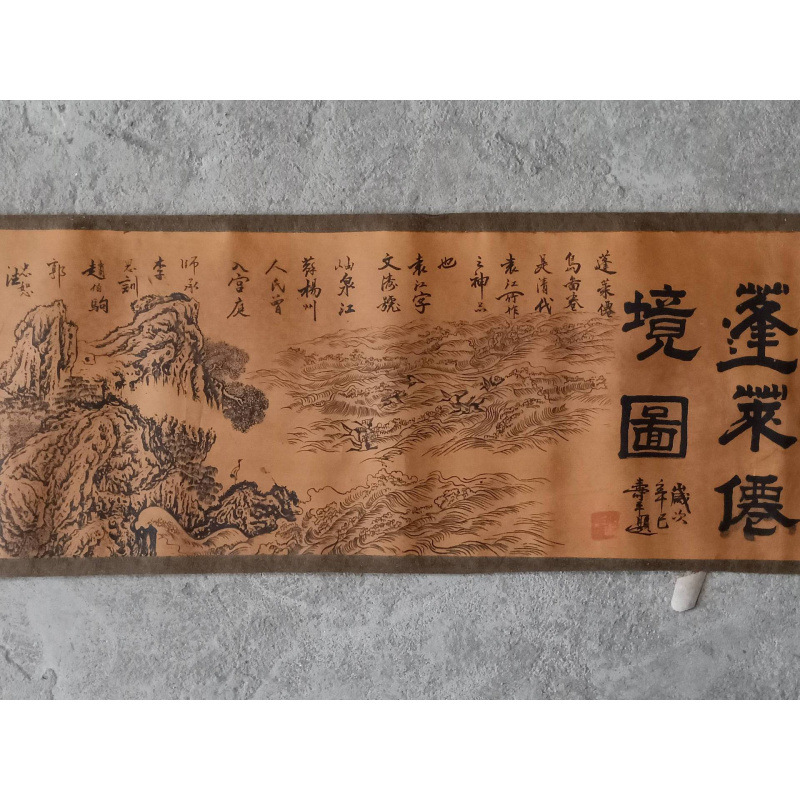 蓬萊僊
境圖
歲次
辛巳
壽平題
蓬萊僊
島啚卷
是清代
袁江所作
之神品
也
袁江字
文濤號
岫泉江
蘇楊州
人氏曾
入宮庭
師承
李
思訓
趙伯駒
郭
忠恕
法